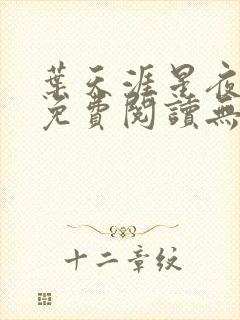 葉天涯星夜
免費閱讀無
十二章紋